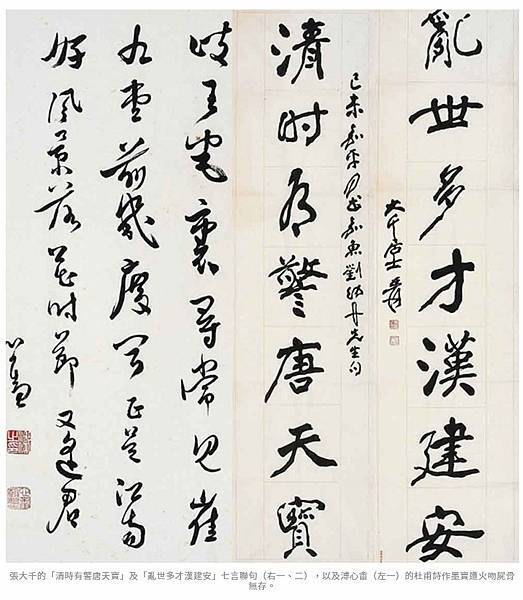 亂世多才漢建安
大千居士爰
己未 先生句
清时有警唐天寶
岐王宅裏尋常見崔
九堂前幾度聞正是江南
好風景落花時節又逢君
心畬
張大千的「清時有警唐天寶」及「亂世多才漢建安」七言聯句（右一、二），以及溥心畬（左一）的杜甫詩作墨寶遭火吻屍骨
無存。